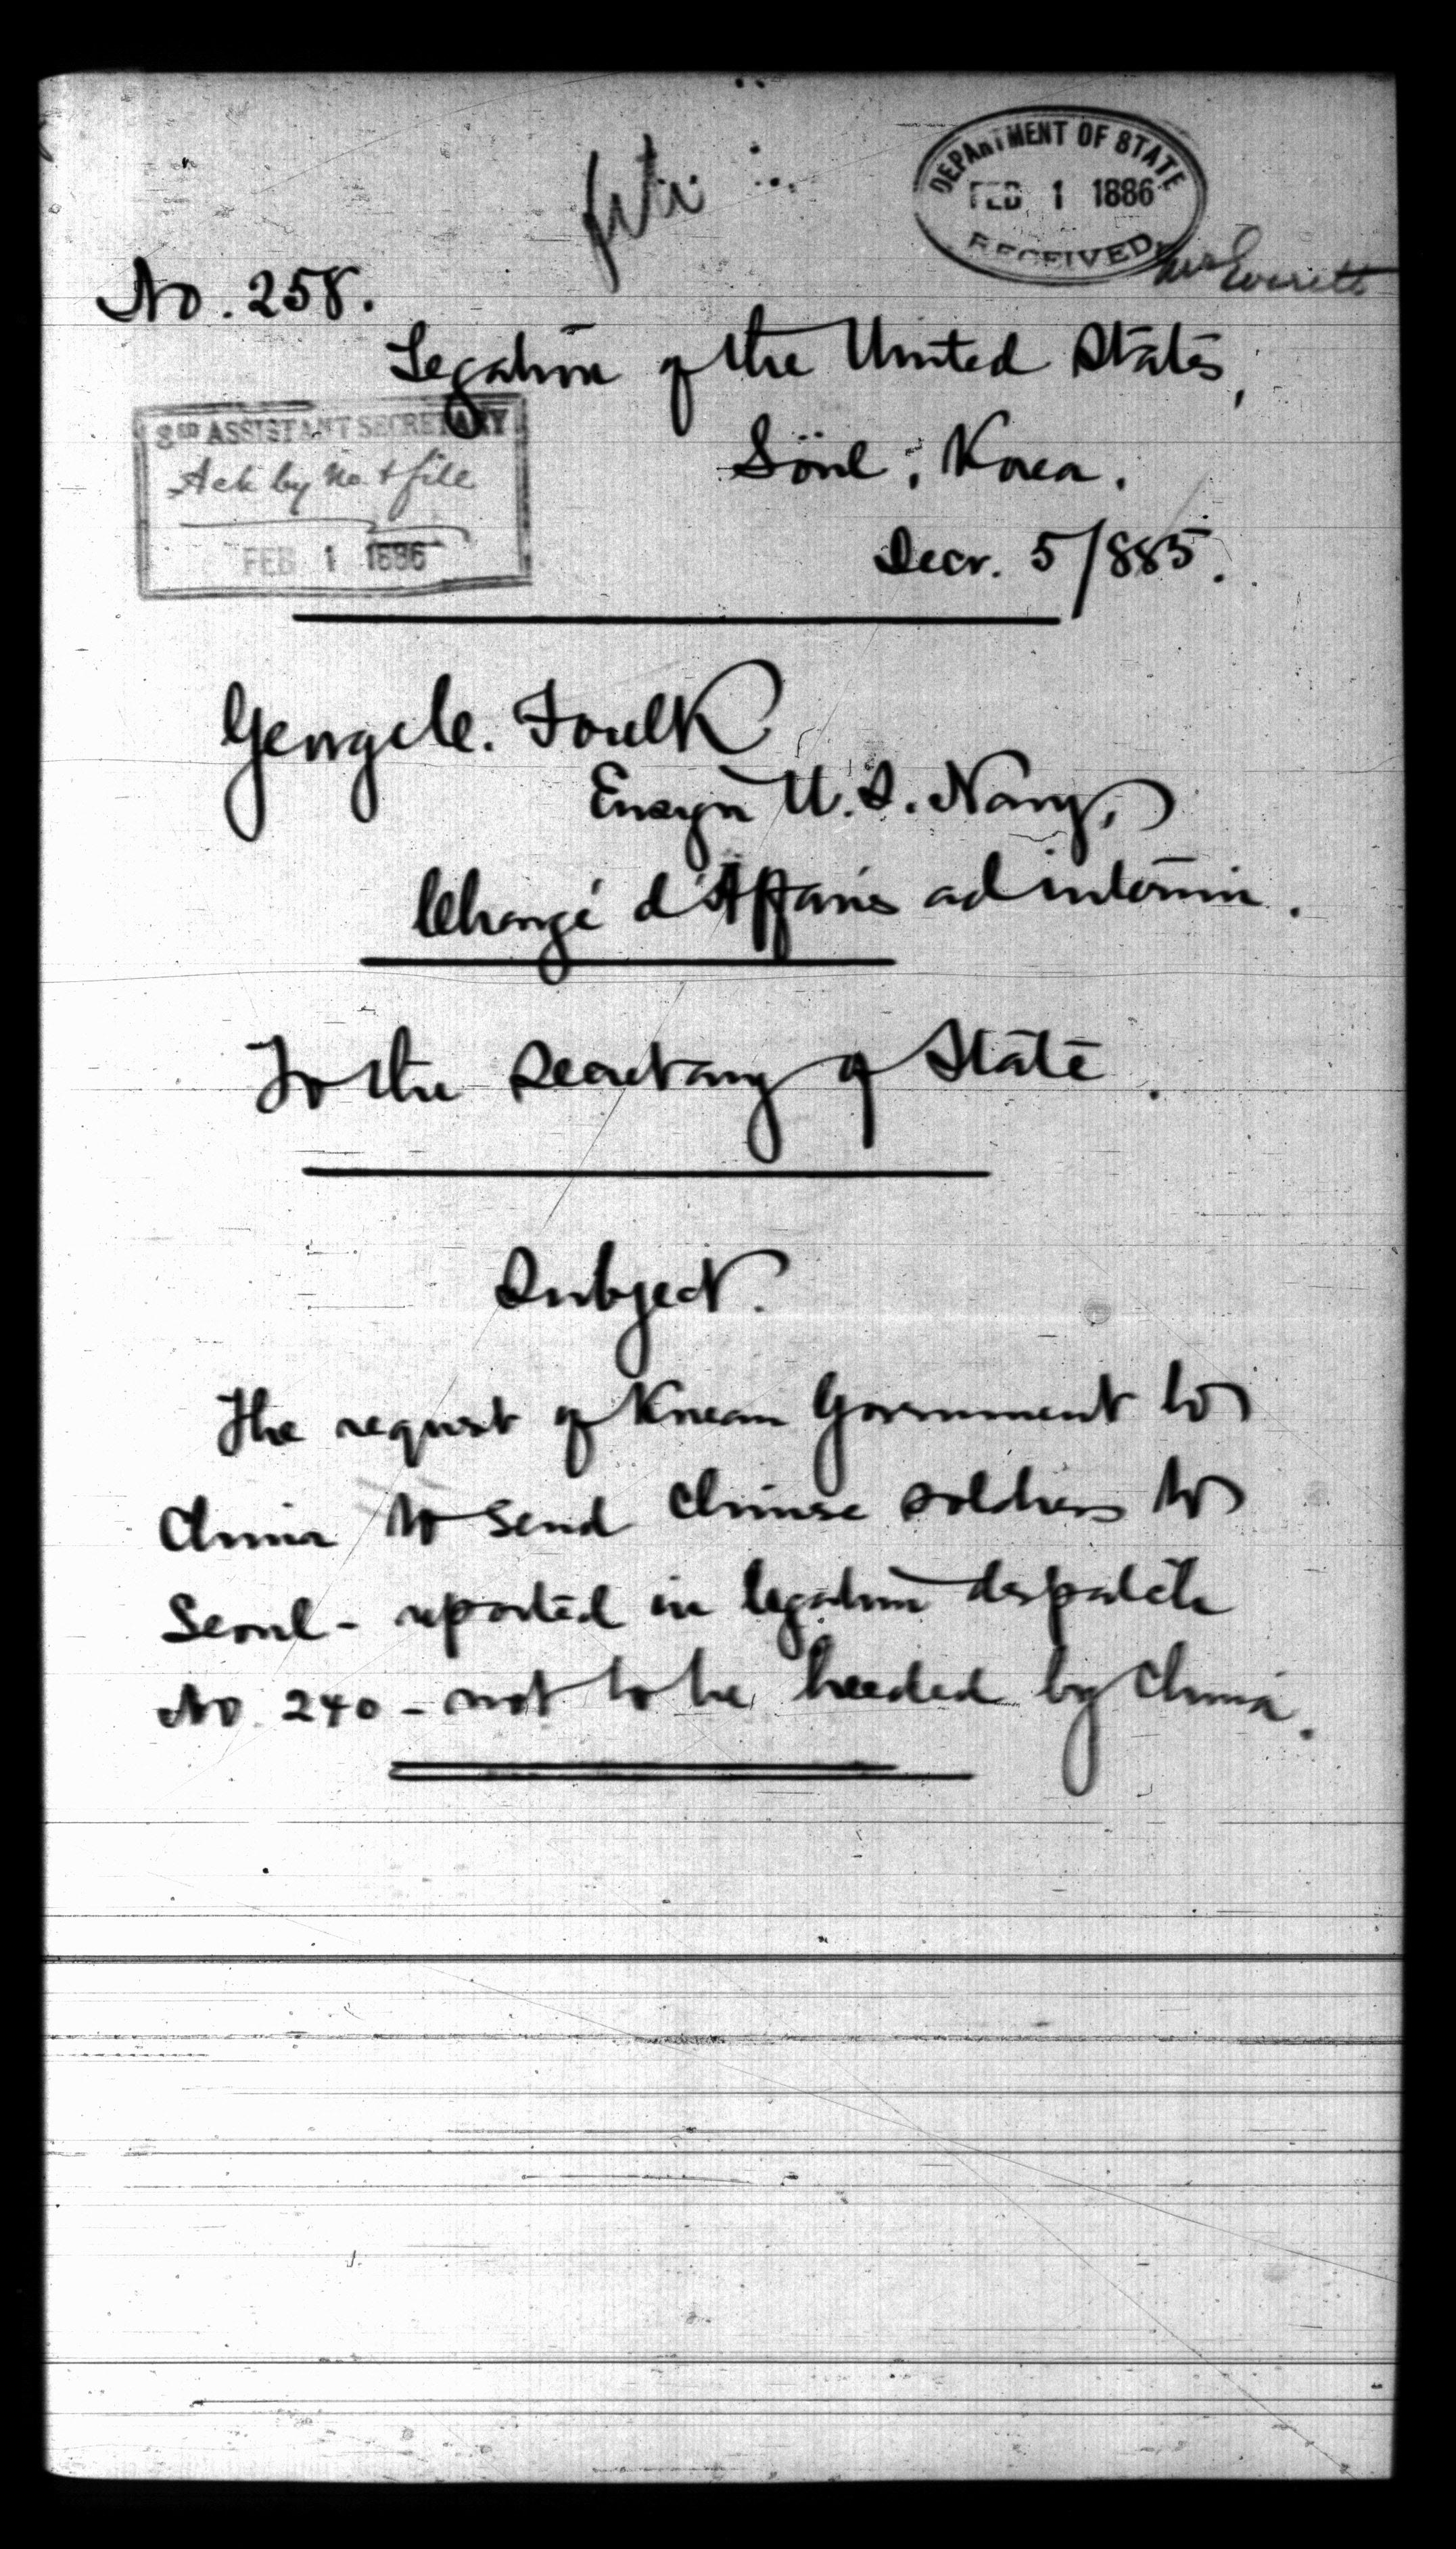 DEPARTMENT OF STATE
FEB 1 1886
RECEIVED
Mr Everett
No. 258.
Legation of the United States,
Söul, Korea.
3RD ASSISTANT SECRETARY
Ack by No. & file
FEB 1 1886
Decr. 5/885.
George C. Foulk
Ensign U.S. Navy,
Chargé d'Affaires ad interim.
To the Secretary of State.
Subject.
The request of Korean Government to
China to send Chinese soldiers to
Seoul - reported in legation despatch
No. 240 - not to be heeded by China.